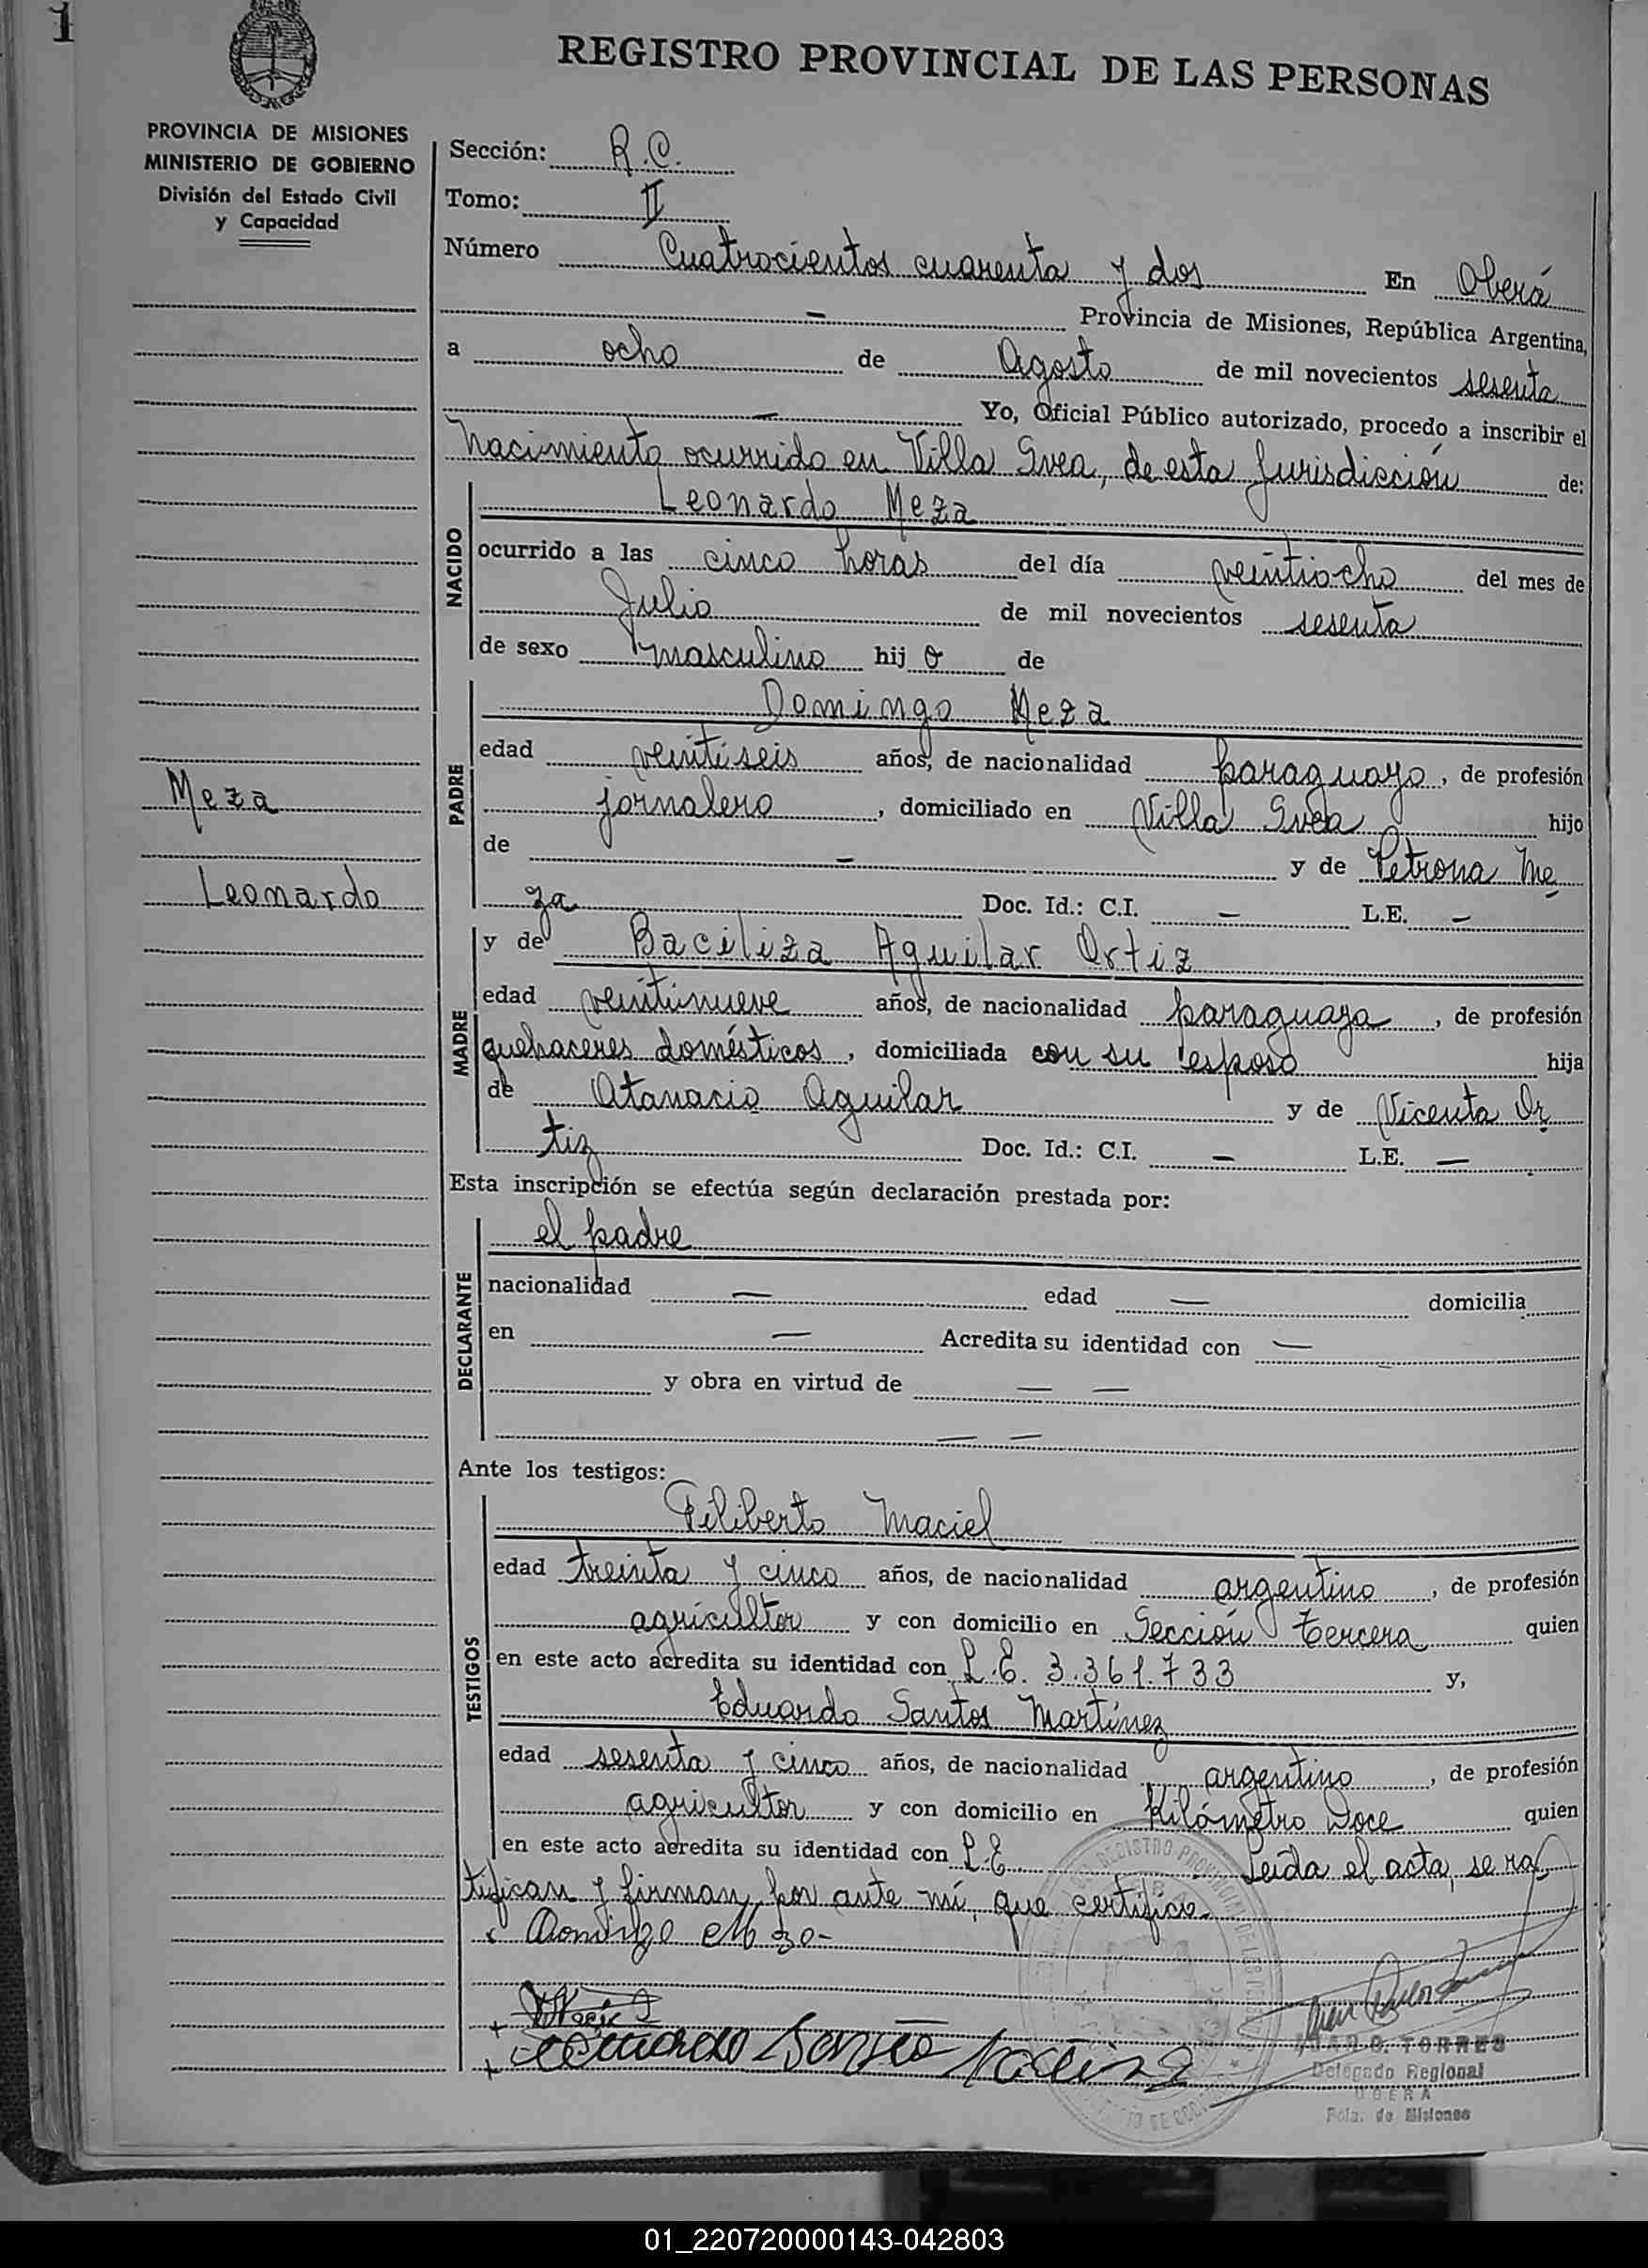 1
REGISTRO PROVINCIAL DE LAS PERSONAS
PROVINCIA DE MISIONES
MINISTERIO DE GOBIERNO
División del Estado Civil
y Capacidad
Sección: R.C.
Tomo: II
Número Cuatrocientos cuarenta y dos En Oberá
— Provincia de Misiones, República Argentina,
a ocho de Agosto de mil novecientos sesenta
— Yo, Oficial Público autorizado, procedo a inscribir el
Nacimiento ocurrido en Villa Svea, de esta Jurisdicción de:
NACIDO
Leonardo Meza
ocurrido a las cinco horas del día veintiocho del mes de
Julio de mil novecientos sesenta
de sexo masculino hijo de
PADRE
Domingo Meza
edad veintiseis años, de nacionalidad paraguayo, de profesión
Meza
jornalero, domiciliado en Villa Svea hijo
de — y de Petrona Me
Leonardo
za Doc. Id.: C.I. — L.E. —
MADRE
y de Baciliza Aguilar Ortiz
edad veintinueve años, de nacionalidad paraguaya, de profesión
quehaceres domésticos, domiciliada con su esposo hija
de Atanacio Aguilar y de Vicenta Or
tiz Doc. Id.: C.I. — L.E. —
Esta inscripción se efectúa según declaración prestada por:
DECLARANTE
el padre
nacionalidad — edad — domicilia
en — Acredita su identidad con —
y obra en virtud de — —
— —
Ante los testigos:
TESTIGOS
Filiberto Maciel
edad treinta y cinco años, de nacionalidad argentino, de profesión
agricultor y con domicilio en Sección tercera quien
en este acto acredita su identidad con L.E. 3.361.733 y,
Eduardo Santos Martínez
edad sesenta y cinco años, de nacionalidad argentino, de profesión
agricultor y con domicilio en Kilómetro Doce quien
en este acto acredita su identidad con L.E Leída el acta, se ra
tifican y firman, por ante mí, que certifico.
Domingo Meza-
JUAN O. TORRES
Delegado Regional
OBERA
Pcia. de Misiones
01_220720000143-042803